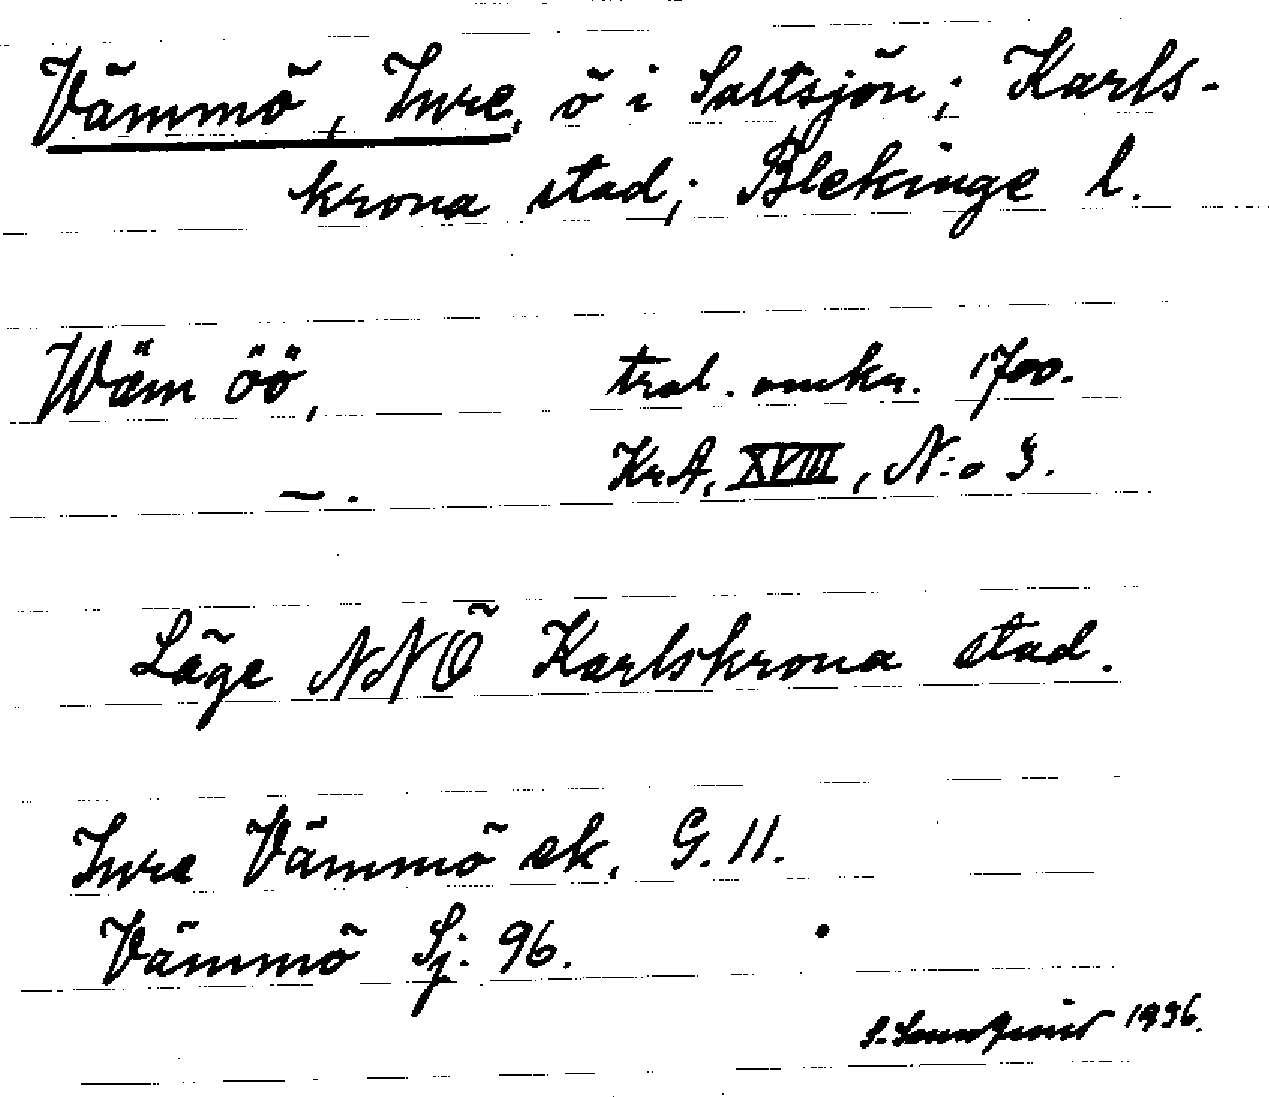 Vämmö, Inre, ö i Saltsjön; Karls-
krona stad; Blekinge l.
Wäm öö, tral. omkr. 1700.
—. KrA, XVIII, N:o 3.
Läge NNÖ Karlskrona stad.
Inre Vämmö ek. G. 11.
Vämmö Sj. 96.
1936.